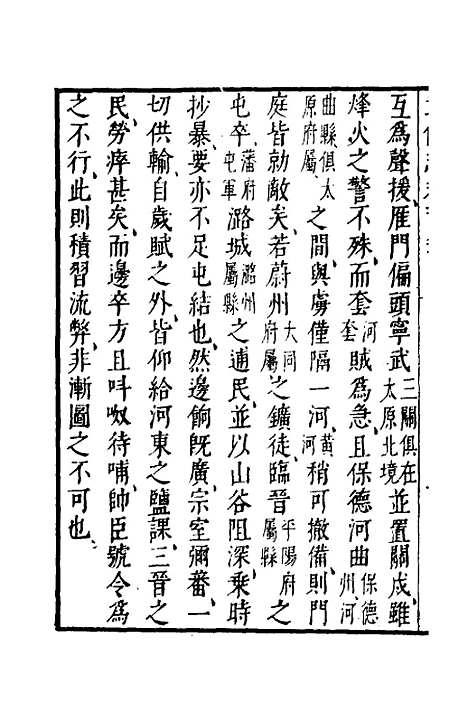 互爲聲援、雁門偏頭寧武三關俱在太原北境並置關戍、雖
烽火之警不殊、而套河套賊爲急、且保德河曲保德州、河
曲縣、俱太原府屬之間、與虜僅隔一河、黃河稍可撤備、則門
庭皆勍敵矣、若蔚州大同府屬之鑛徒、臨晉平陽府屬縣之
屯卒、瀋府屯軍潞城潞州屬縣之逋民、並以山谷阻深、乘時
抄暴、要亦不足屯結也、然邊餉旣廣、宗室彌蕃、一
切供輸、自歲賦之外、皆仰給河東之鹽課、三晉之
民、勞瘁甚矣、而邊卒方且呌呶待哺、帥臣號令爲
之不行、此則積習流弊、非漸圖之不可也、